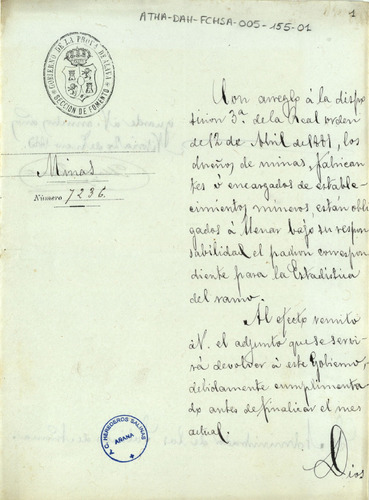 ATHA-DAH-FCHSA-005-155-01
1
GOBIERNO DE LA PROVA. DE ALAVA
SECCION DE FOMENTO
Minas
Número 7236.
Con arreglo á la dispo
sicion 3ª de la Real orden
de 12 de Abril de 1881, los
dueños de minas, fabrican
tes ó encargados de estable-
cimientos mineros, están obli
gados á llenar bajo su respon
sabilidad el padron correspon
diente para la Estadística
del ramo.
Al efecto remito
á V. el adjunto que se servi
rá devolver á este Gobierno,
debidamente cumplimenta
do antes de finalizar el mes
actual.
Dios
A. C. HEREDEROS SALINAS
ARANA